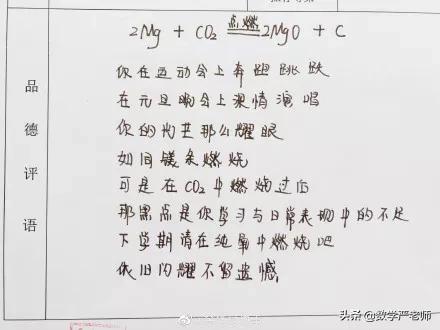 2Mg + CO₂ 点燃 2MgO + C
品德评语
你在运动会上奔跑跳跃
在元旦晚会上深情演唱
你的光芒那么耀眼
如同镁条燃烧
可是在CO₂中燃烧过后
那黑点是你学习与日常表现中的不足
下学期请在纯氧中燃烧吧
依旧闪耀不留遗憾
头条 @数学严老师